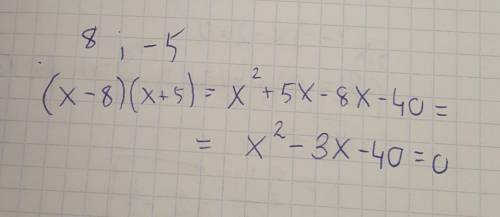 8 ; -5
(x-8)(x+5) = x² + 5x - 8x - 40 =
= x² - 3x - 40 = 0